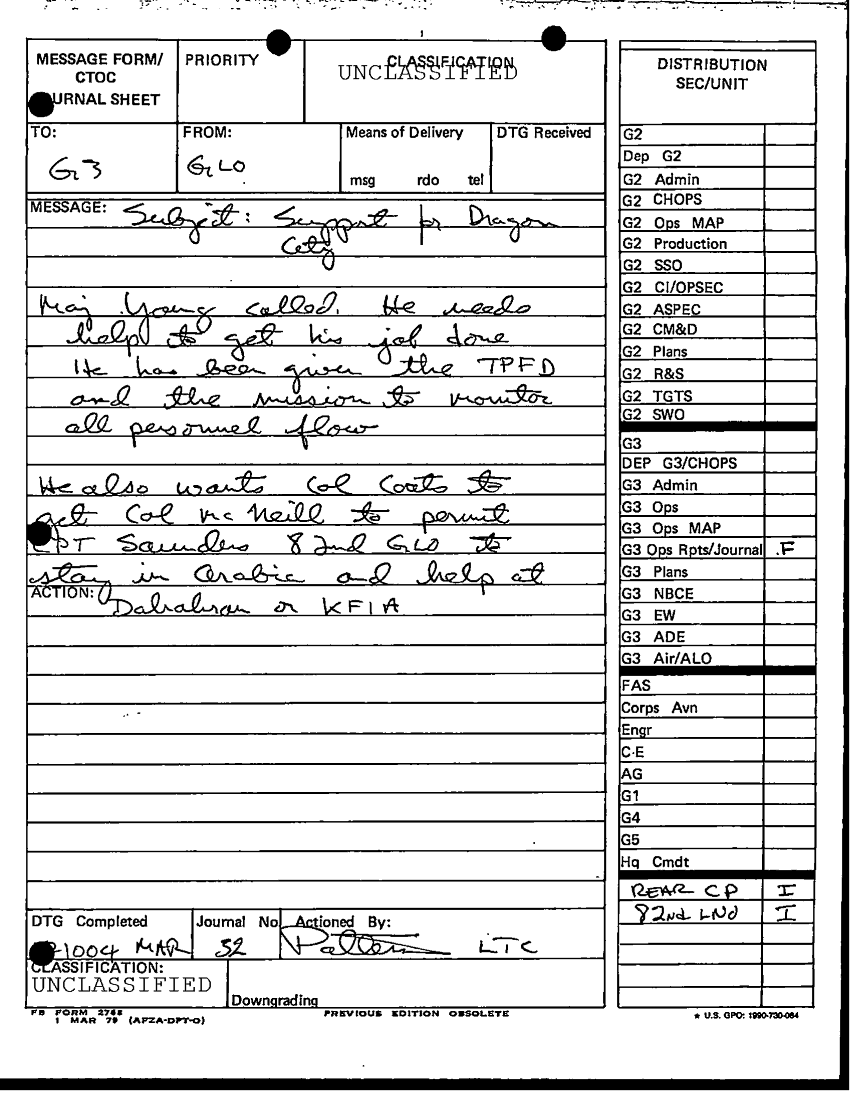 MESSAGE FORM/
CTOC
URNAL SHEET
PRIORITY
CLASSIFICATION
UNCLASSIFIED
TO:
G3
FROM:
GLO
Means of Delivery
msg rdo tel
DTG Received
MESSAGE: Subject: Support for Dragon
City
Maj Young called. He needs
help to get his job done
He has been given the TPFD
and the mission to monitor
all personnel flow
He also wants Col Coats to
get Col McNeill to permit
CPT Saunders 82nd GLO to
stay in Arabia and help at
ACTION: Dahrahran or KFIA
DTG Completed
1004 MAR
Journal No
52
Actioned By:
Patten LTC
CLASSIFICATION:
UNCLASSIFIED
Downgrading
FB FORM 2768
1 MAR 79 (AFZA-DPT-O)
PREVIOUS EDITION OBSOLETE
DISTRIBUTION
SEC/UNIT
G2
Dep G2
G2 Admin
G2 CHOPS
G2 Ops MAP
G2 Production
G2 SSO
G2 CI/OPSEC
G2 ASPEC
G2 CM&D
G2 Plans
G2 R&S
G2 TGTS
G2 SWO
G3
DEP G3/CHOPS
G3 Admin
G3 Ops
G3 Ops MAP
G3 Ops Rpts/Journal .F
G3 Plans
G3 NBCE
G3 EW
G3 ADE
G3 Air/ALO
FAS
Corps Avn
Engr
C-E
AG
G1
G4
G5
Hq Cmdt
REAR CP I
82nd LNO I
★ U.S. GPO: 1990-730-084